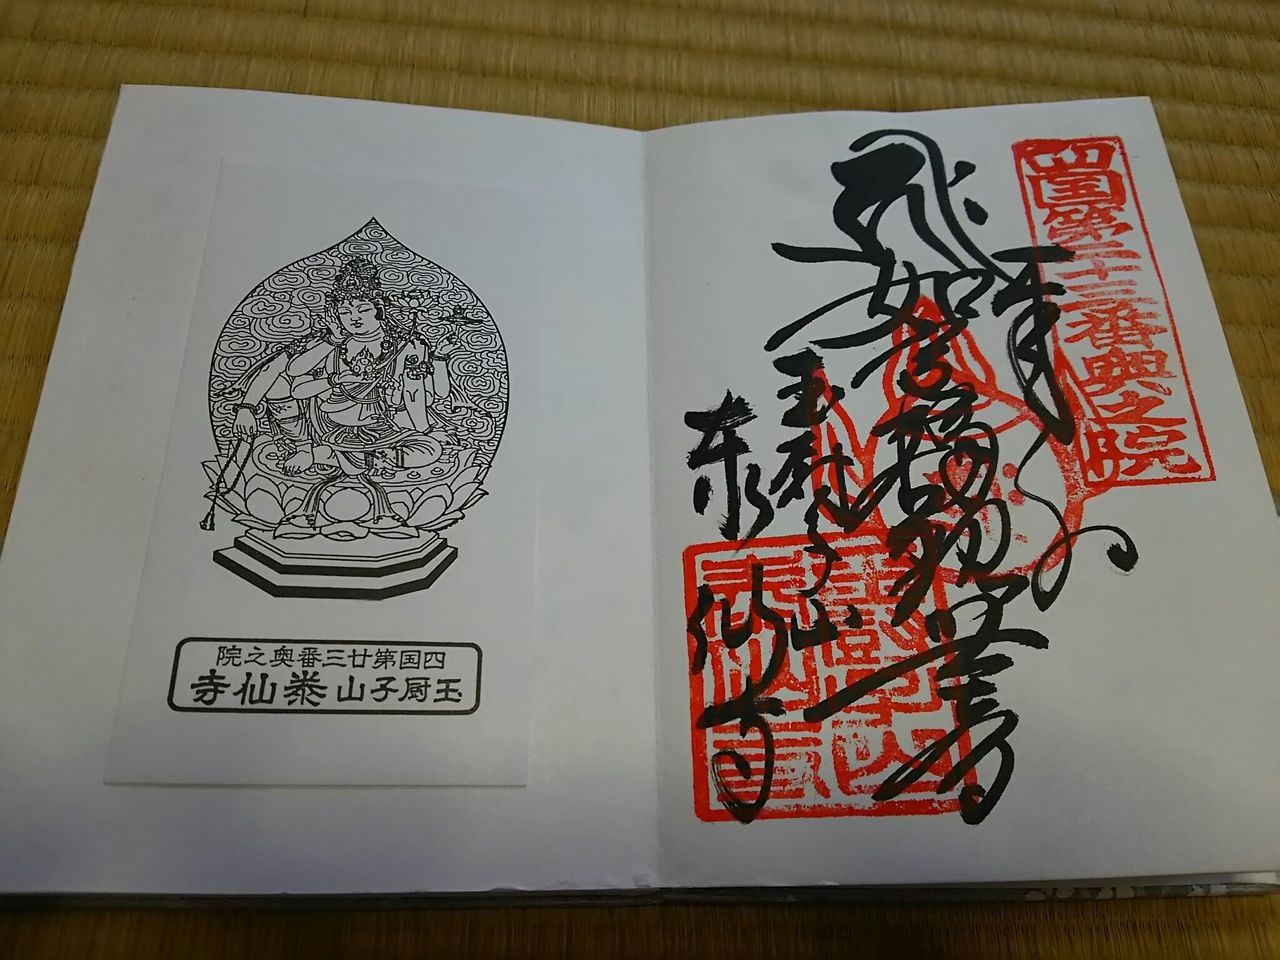 四国第二十三番奥之院
奉拝
如意輪観世音
玉厨子山
泰仙寺
四国第廿三番奥之院
玉厨子山泰仙寺